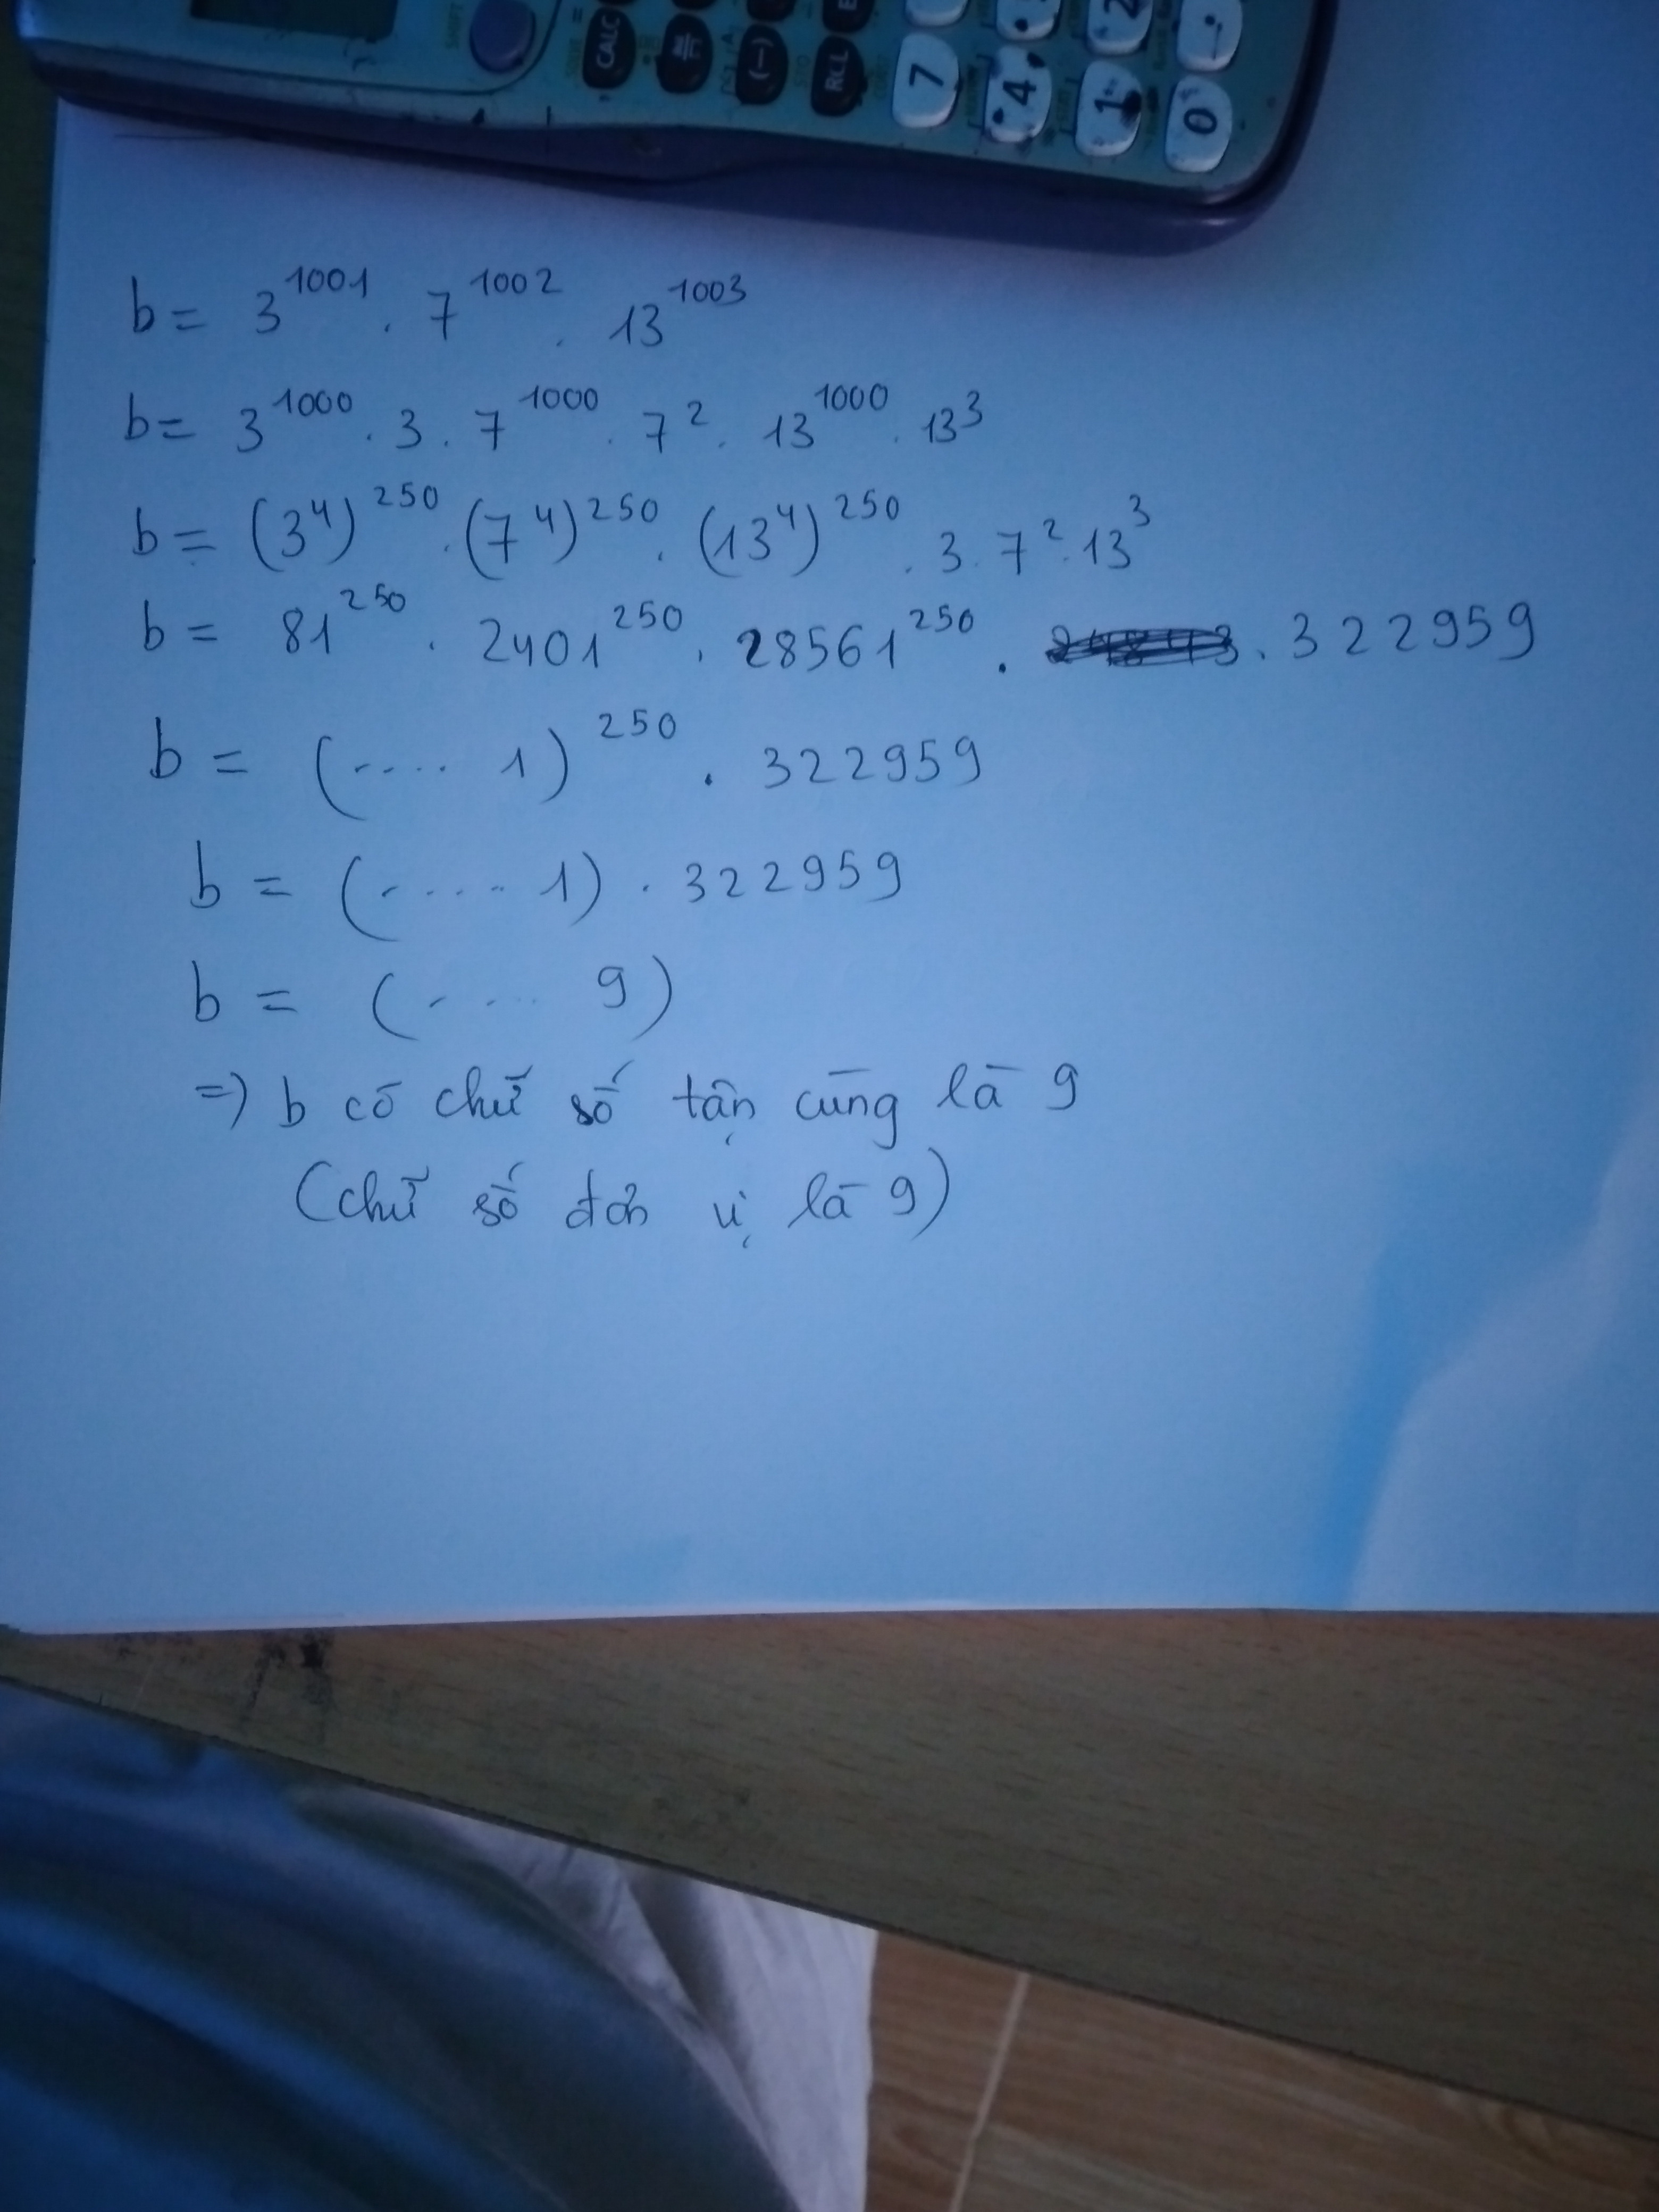 SHIFT
CALC
(-)
RCL
7
4
1
0
2
b = 3^1001 . 7^1002 . 13^1003
b = 3^1000 . 3 . 7^1000 . 7^2 . 13^1000 . 13^3
b = (3^4)^250 . (7^4)^250 . (13^4)^250 . 3 . 7^2 . 13^3
b = 81^250 . 2401^250 . 28561^250 . . 322959
b = (.... 1)^250 . 322959
b = (..... 1) . 322959
b = (.... 9)
=) b có chữ số tận cùng là 9
(chữ số đơn vị là 9)